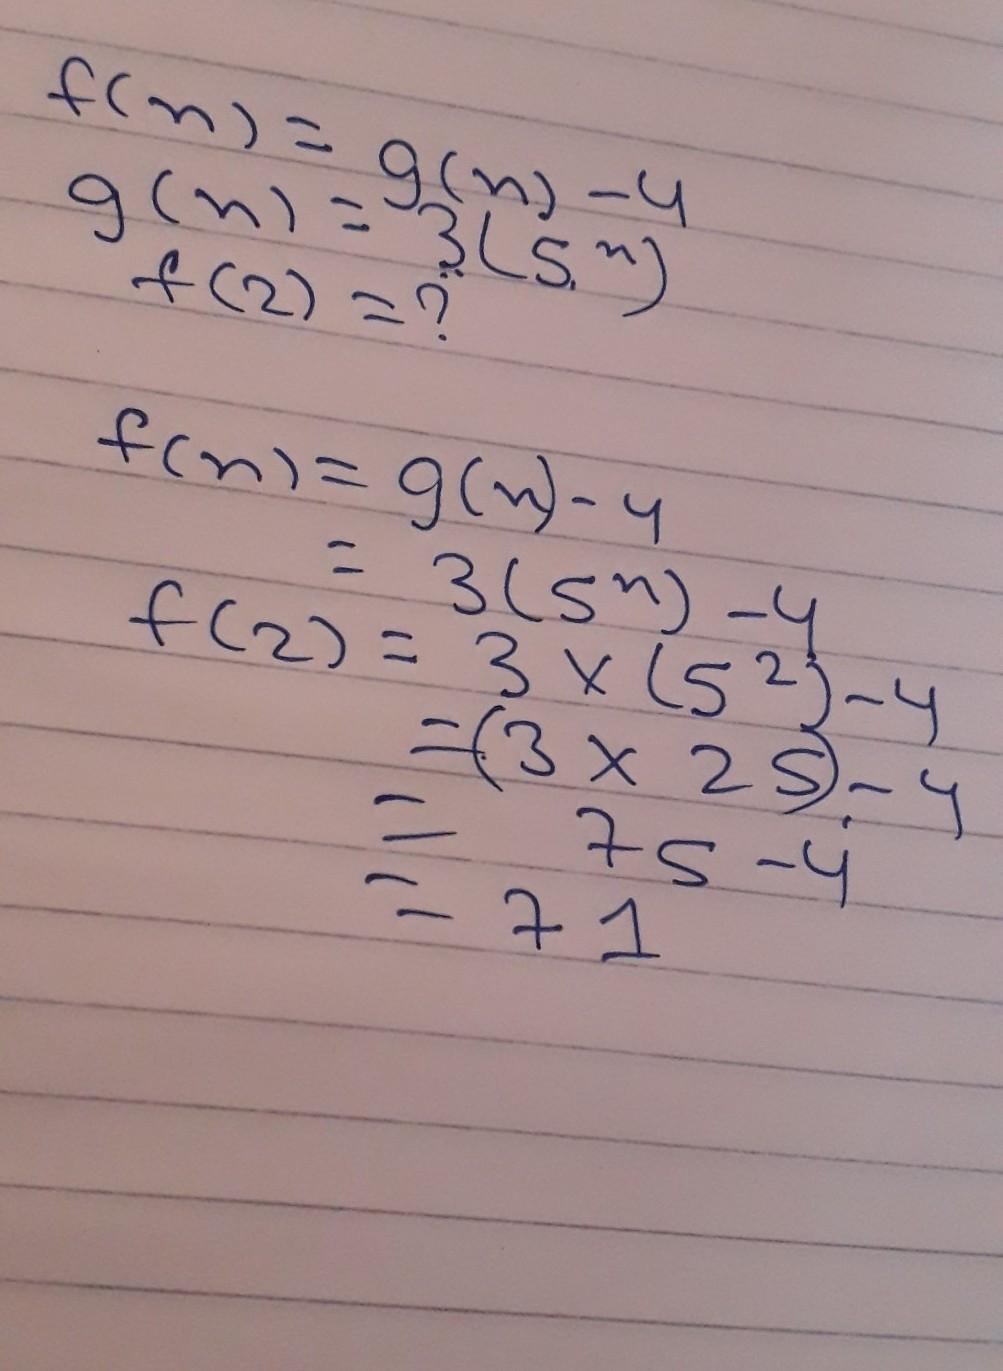 f(n) = g(n) - 4
g(n) = 3(5ⁿ)
f(2) = ?
f(n) = g(n) - 4
= 3(5ⁿ) - 4
f(2) = 3 × (5²) - 4
= (3 × 25) - 4
= 75 - 4
= 71